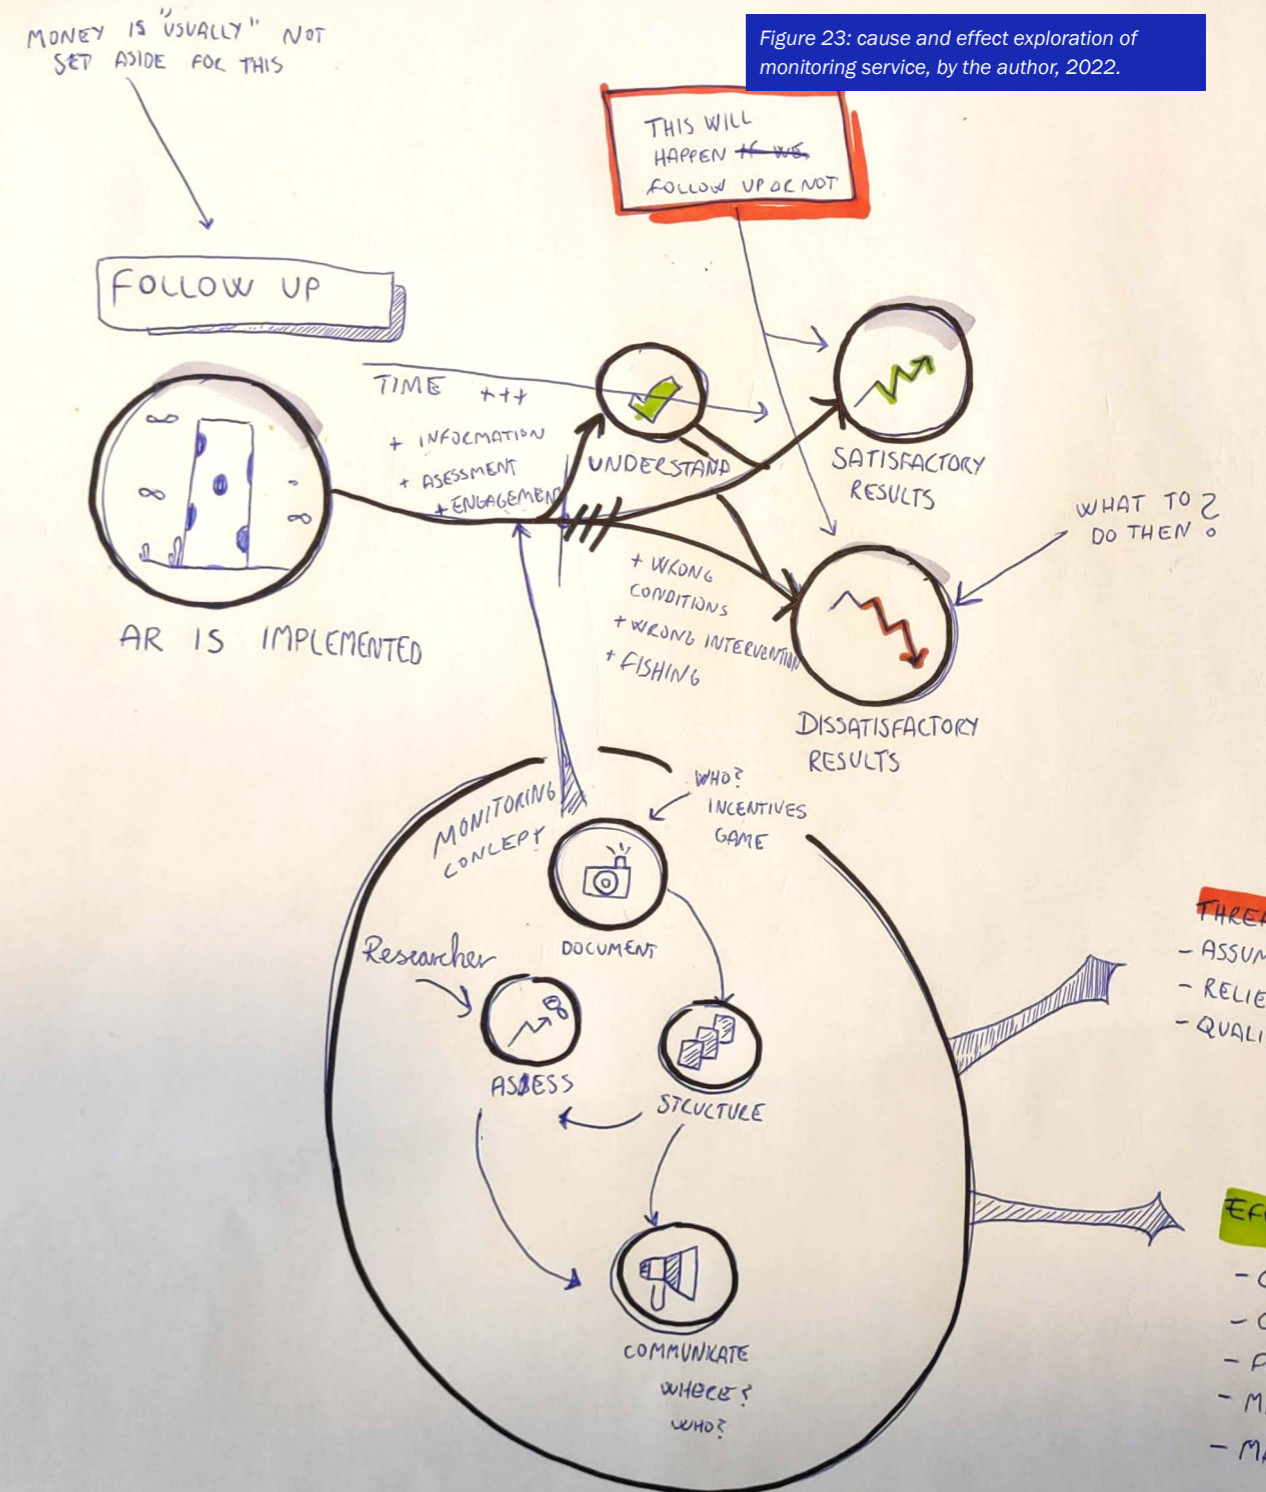 MONEY IS "USUALLY" NOT
SET ASIDE FOR THIS
Figure 23: cause and effect exploration of
monitoring service, by the author, 2022.
THIS WILL
HAPPEN IF WE
FOLLOW UP OR NOT
FOLLOW UP
TIME +++
+ INFORMATION
+ ASESSMENT
+ ENGAGEMENT
UNDERSTAND
SATISFACTORY
RESULTS
WHAT TO
DO THEN?
AR IS IMPLEMENTED
+ WRONG
CONDITIONS
+ WRONG INTERVENTION
+ FISHING
DISSATISFACTORY
RESULTS
MONITORING
CONCEPT
WHO?
INCENTIVES
GAME
DOCUMENT
Researcher
ASSESS
STRUCTURE
COMMUNICATE
WHERE?
WHO?
THREA
- ASSUM
- RELIE
- QUALI
EF
- C
-
-
- M
- MA